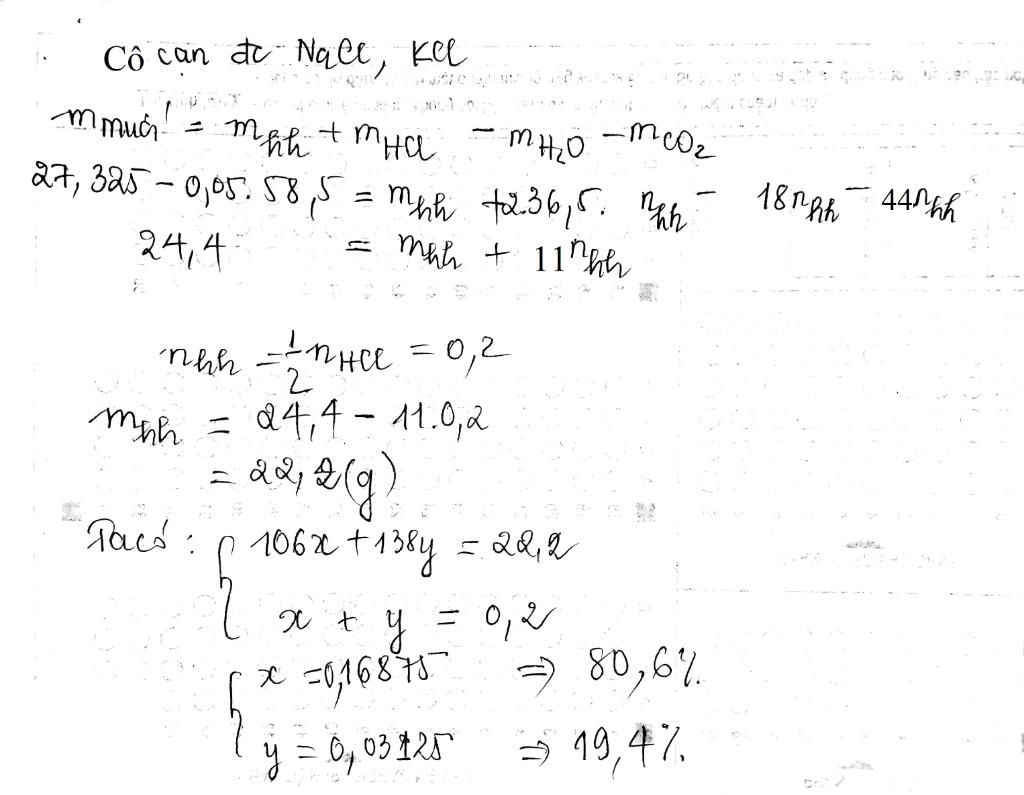 Cô cạn đc NaCl, KCl
m muối = m hh + m HCl - m H₂O - m CO₂
27,325 - 0,05. 58,5 = m hh + 2.36,5. n hh - 18n hh - 44n hh
24,4 = m hh + 11 n hh
n hh = 1/2 n HCl = 0,2
m hh = 24,4 - 11.0,2
= 22,2(g)
Ta có : { 106x + 138y = 22,2
x + y = 0,2
{ x = 0,16875 => 80,6%
y = 0,03125 => 19,4%.